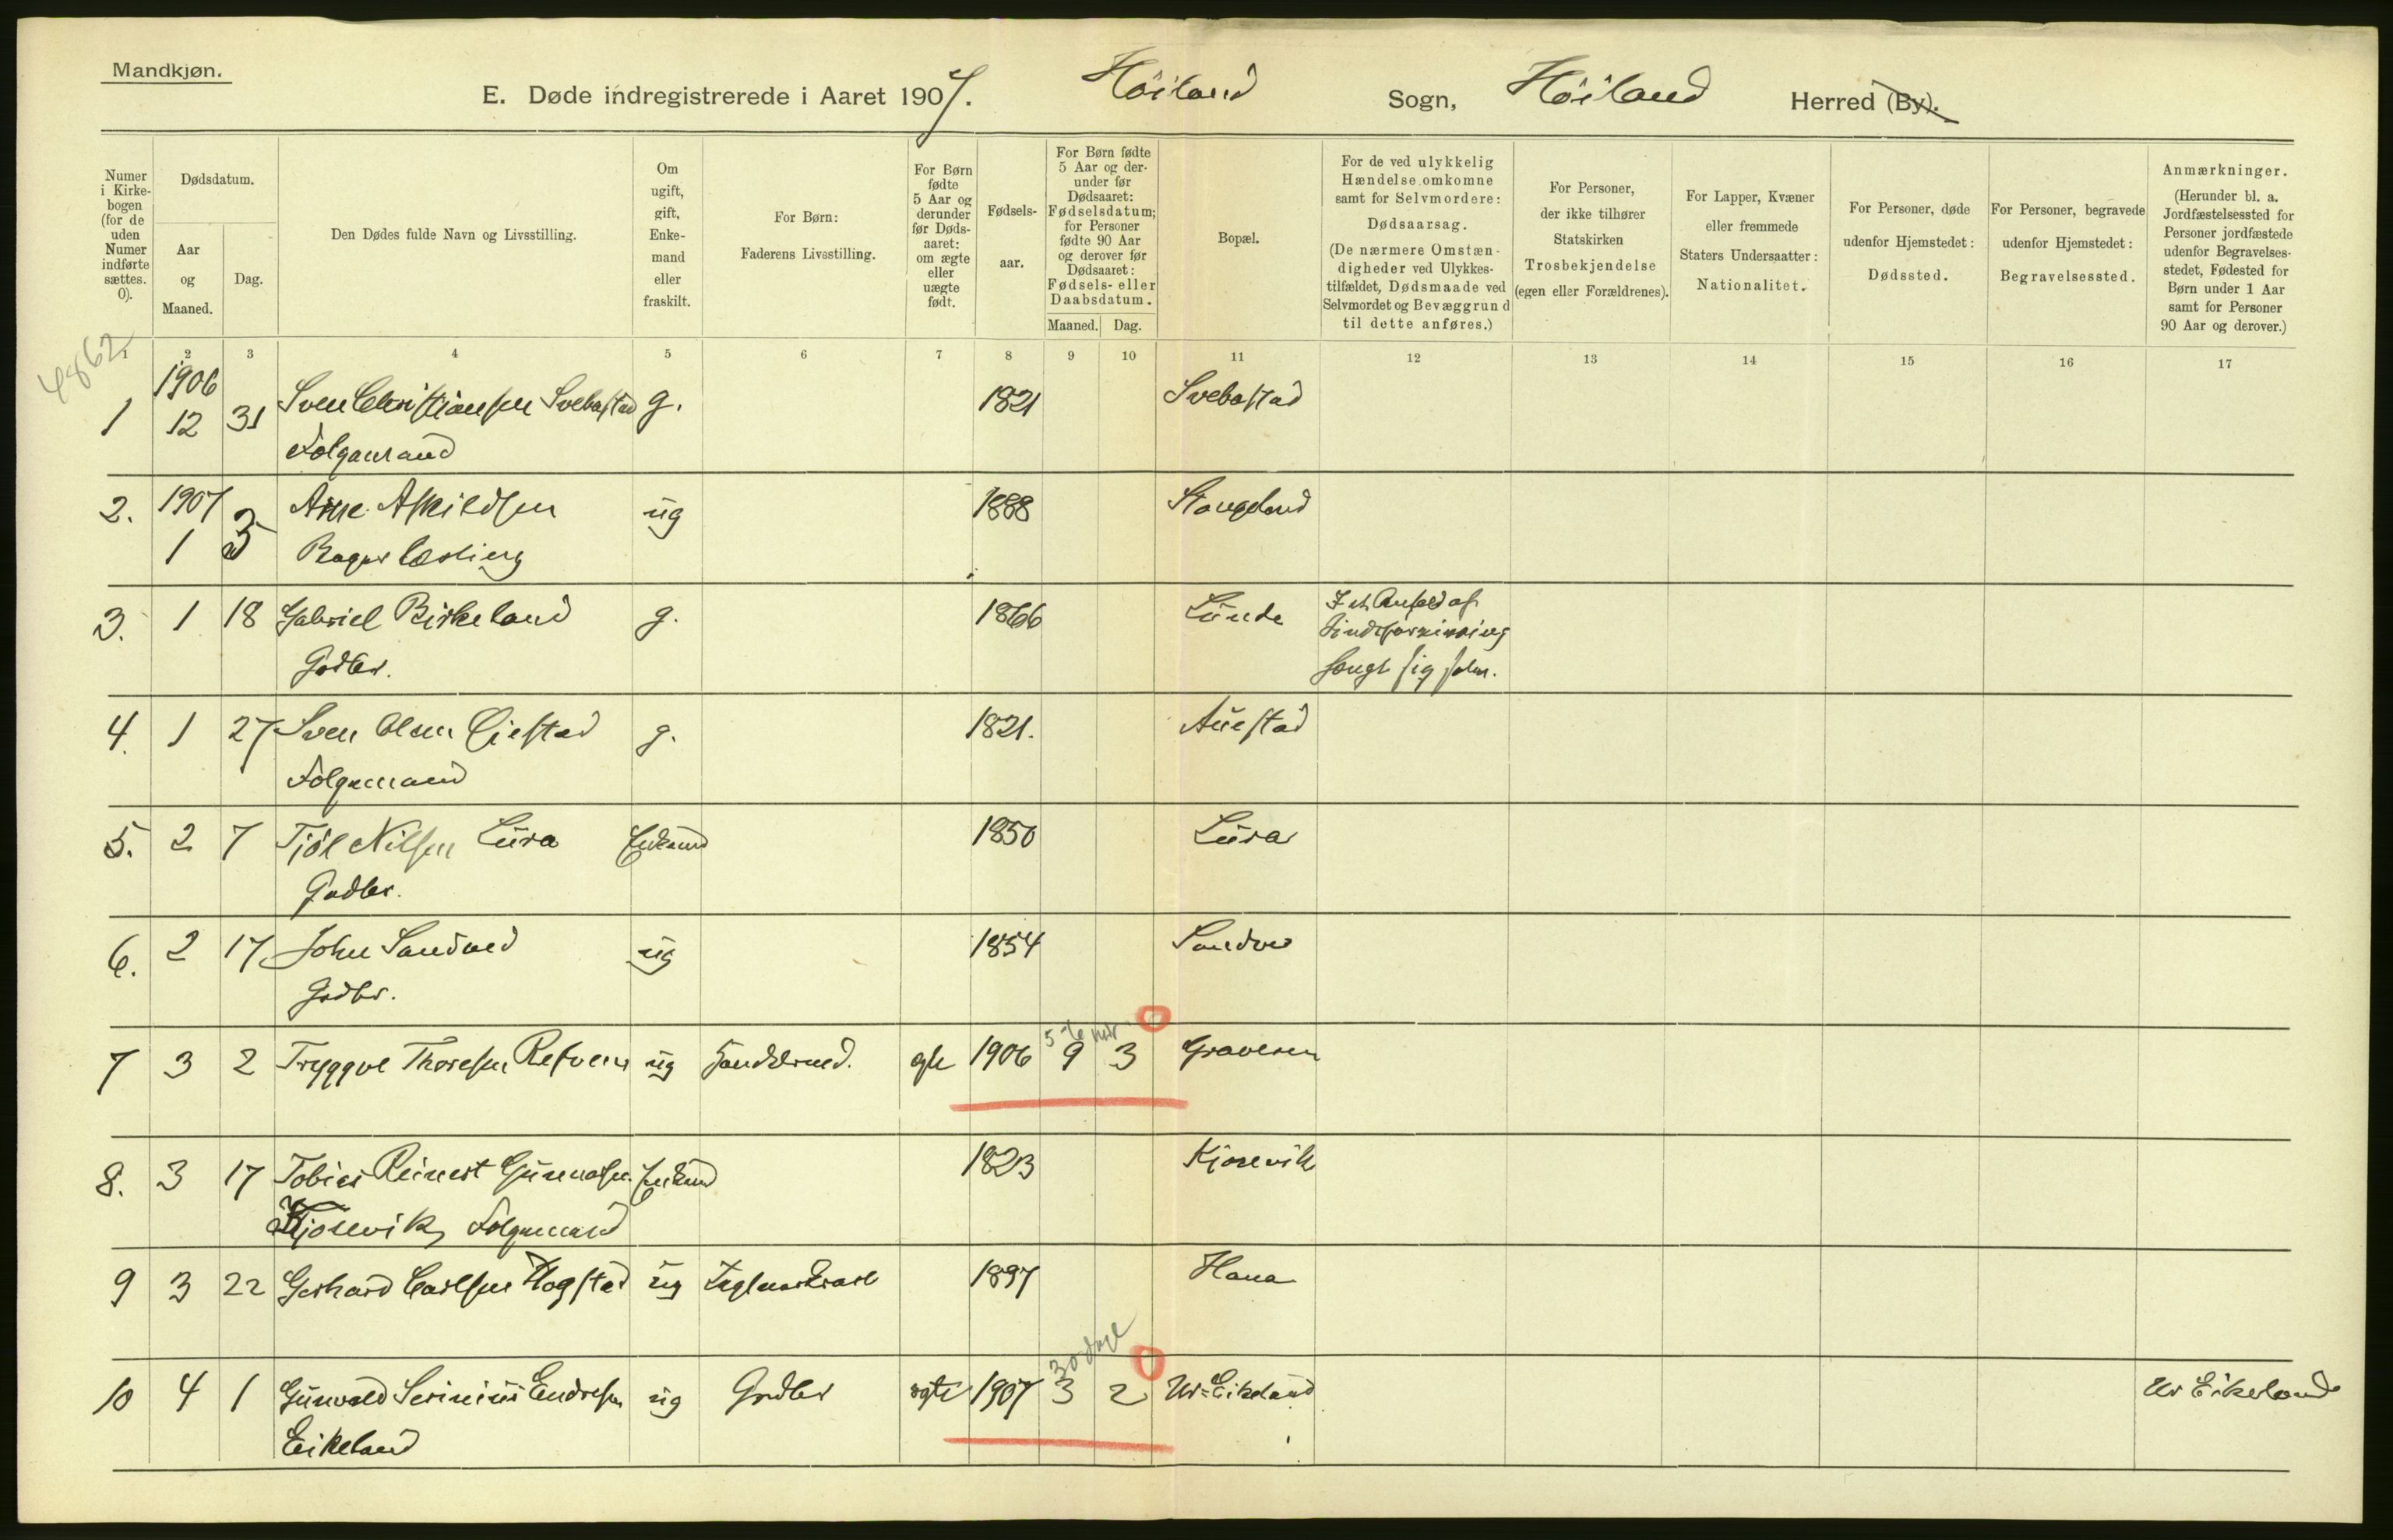 Mandkjøn.
E. Døde indregistrerede i Aaret 1907. Höiland Sogn, Höiland Herred (By).
Numer i Kirkebogen (for de uden Numer indførte sættes. 0).
Dødsdatum.
Aar og Maaned.
Dag.
Den Dødes fulde Navn og Livsstilling.
Om ugift, gift, Enkemand eller fraskilt.
For Børn: Faderens Livsstilling.
For Børn fødte 5 Aar og derunder før Dødsaaret: om ægte eller uægte født.
Fødselsaar.
For Børn fødte 5 Aar og derunder før Dødsaaret: Fødselsdatum; for Personer fødte 90 Aar og derover før Dødsaaret: Fødsels- eller Daabsdatum.
Maaned. Dag.
Bopæl.
For de ved ulykkelig Hændelse omkomne samt for Selvmordere: Dødsaarsag. (De nærmere Omstændigheder ved Ulykkestilfældet, Dødsmaade ved Selvmordet og Bevæggrund til dette anføres.)
For Personer, der ikke tilhører Statskirken Trosbekjendelse (egen eller Forældrenes).
For Lapper, Kvæner eller fremmede Staters Undersaatter: Nationalitet.
For Personer, døde udenfor Hjemstedet: Dødssted.
For Personer, begravede udenfor Hjemstedet: Begravelsessted.
Anmærkninger. (Herunder bl. a. Jordfæstelsessted for Personer jordfæstede udenfor Begravelsesstedet, Fødested for Børn under 1 Aar samt for Personer 90 Aar og derover.)
4862
1 2 3 4 5 6 7 8 9 10 11 12 13 14 15 16 17
1906
1 12 31 Sven Christiansen Svebastad g. 1821 Svebastad
Folgemand
2. 1907 Arne Askildsen ug 1888 Stangeland
1 3 Bagerlærling
3. 1 18 Gabriel Birkeland g. 1866 Lunde I et Anfald af
Sindsforvirring
Godbr. hengt sig selv.
4. 1 27 Sven Olsen Oiestad g. 1821. Auestad
Folgemand
5. 2 7 Tjöl Nilsen Lura Enkemd 1850 Lura
Gadbr.
6. 2 17 John Sandved ug 1854 Sandve
Gadbr.
5-6 mdr
7 3 2 Tryggve Thoresen Refvem ug Handelsmd. gte 1906 9 3 Graveren
8. 3 17 Tobias Reinert Gunnarsen Enkemd 1823 Kjosevik
Kjosevik, Folgemand
9 3 22 Gerhard Carlsen Hogstad ug 1897 Hana
30 dage
10 4 1 Gunvald Serinius Endresen ug Gadbr ægte 1907 3 2 Ur-Eikeland Ur Eikeland
Eikeland